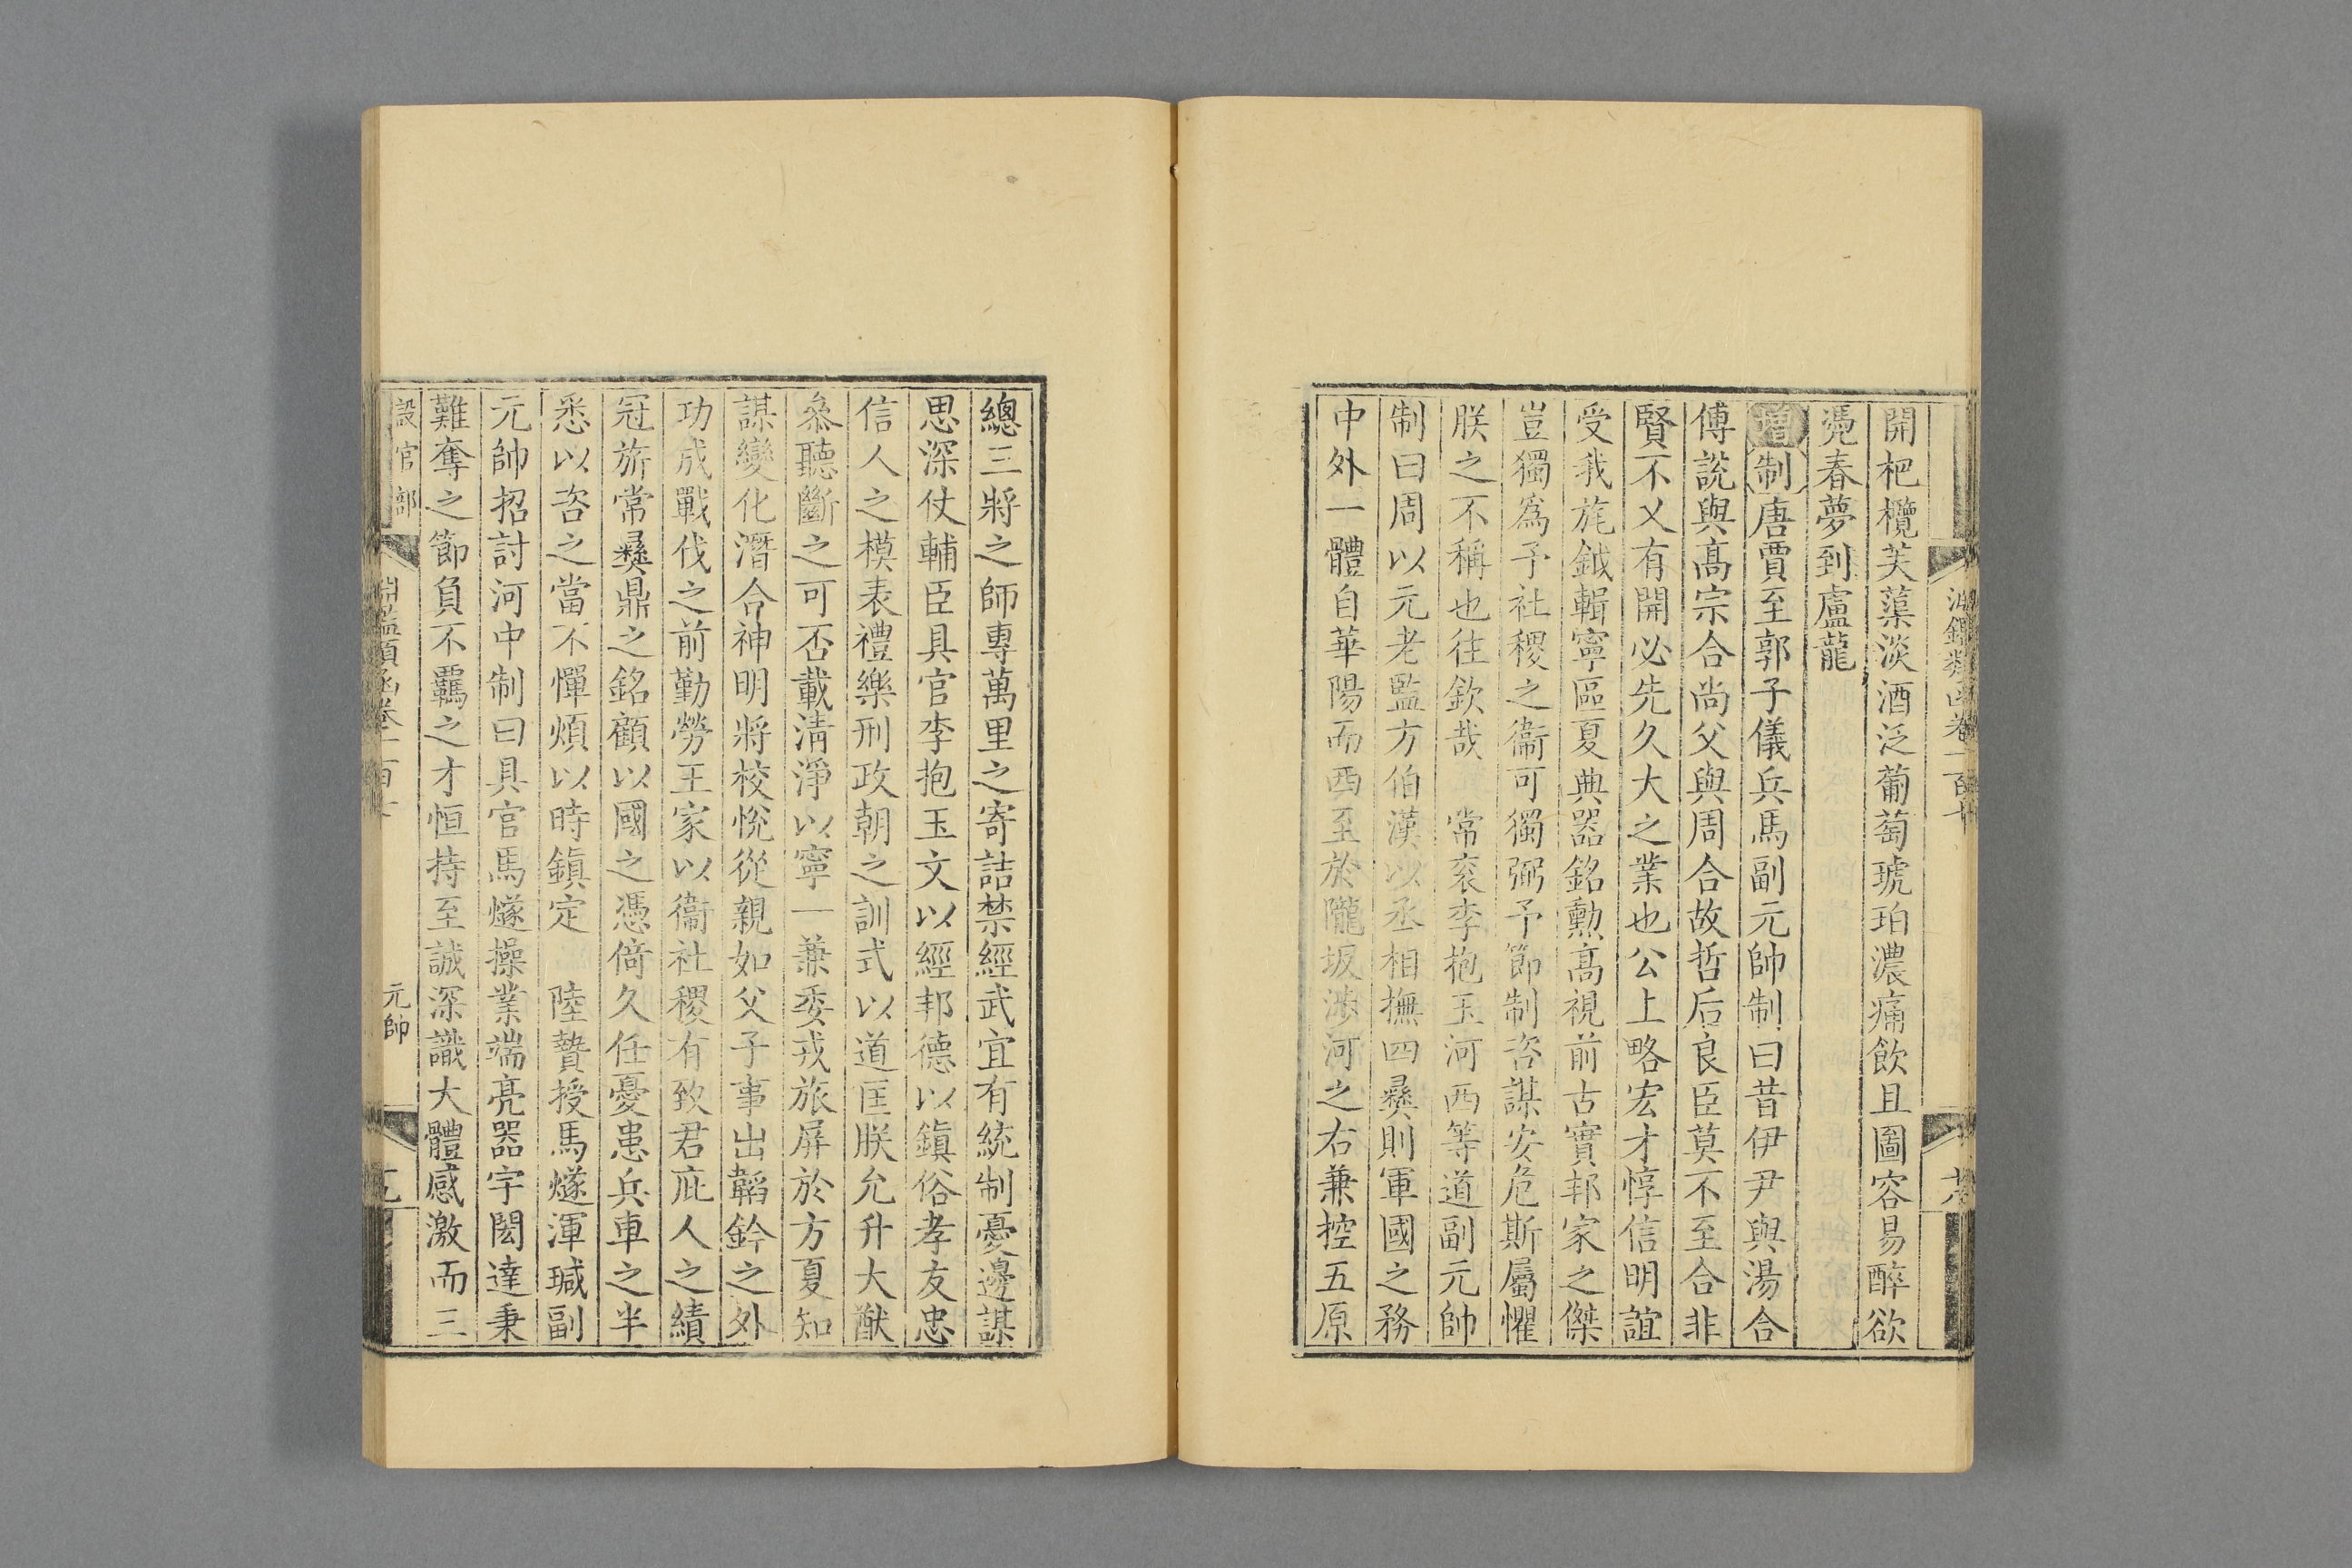 開杷欖芙蕖淡酒泛葡萄琥珀濃痛飲且圖容易醉欲
凴春夢到盧龍
增制唐賈至郭子儀兵馬副元帥制曰昔伊尹與湯合
傅說與髙宗合尚父與周合故哲后良臣莫不至合非
賢不乂有開必先久大之業也公上略宏才惇信明誼
受我旄鉞輯寧區夏典器銘勲髙視前古實邦家之傑
豈獨爲予社稷之衞可獨弼予節制咨謀安危斯屬懼
朕之不稱也往欽哉　常袞李抱玉河西等道副元帥
制曰周以元老監方伯漢以丞相撫四彝則軍國之務
中外一體自華陽而西至於隴坂涉河之右兼控五原
總三將之師專萬里之寄詰禁經武宜有統制憂邊謀
思深仗輔臣具官李抱玉文以經邦德以鎮俗孝友忠
信人之模表禮樂刑政朝之訓式以道匡朕允升大猷
叅聽斷之可否載清淨以寧一兼委戎旅屏於方夏知
謀變化潛合神明將校悅從親如父子事出韜鈐之外
功成戰伐之前勤勞王家以衞社稷有致君庇人之績
冠旂常彞鼎之銘顧以國之憑倚久任憂患兵車之半
悉以咨之當不憚煩以時鎮定　陸贄授馬燧渾瑊副
元帥招討河中制曰具官馬燧操業端亮器宇閎達秉
難奪之節負不羈之才恒持至誠深識大體感激而三
設官部
元帥